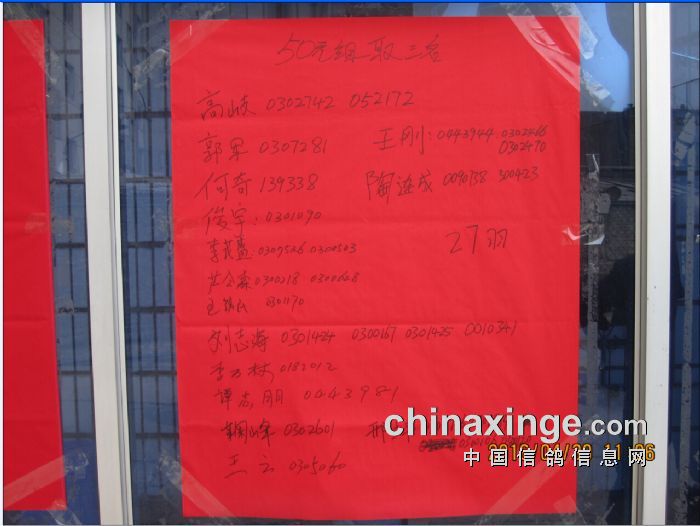 50元组取三名
高岐 0302742 052172
郭军 0307281 王刚: 0443944 0302466
0302470
何奇 139338 陶连成 0090138 300423
俊宇: 0301090
27羽
0309526 0300503
0300218 0300628
0301170
刘志海 0301424 0300167 0301425 0010341
0182012
谭志朋 0443981
0302601
王云 0305060
chinaxinge.com
中国信鸽信息网